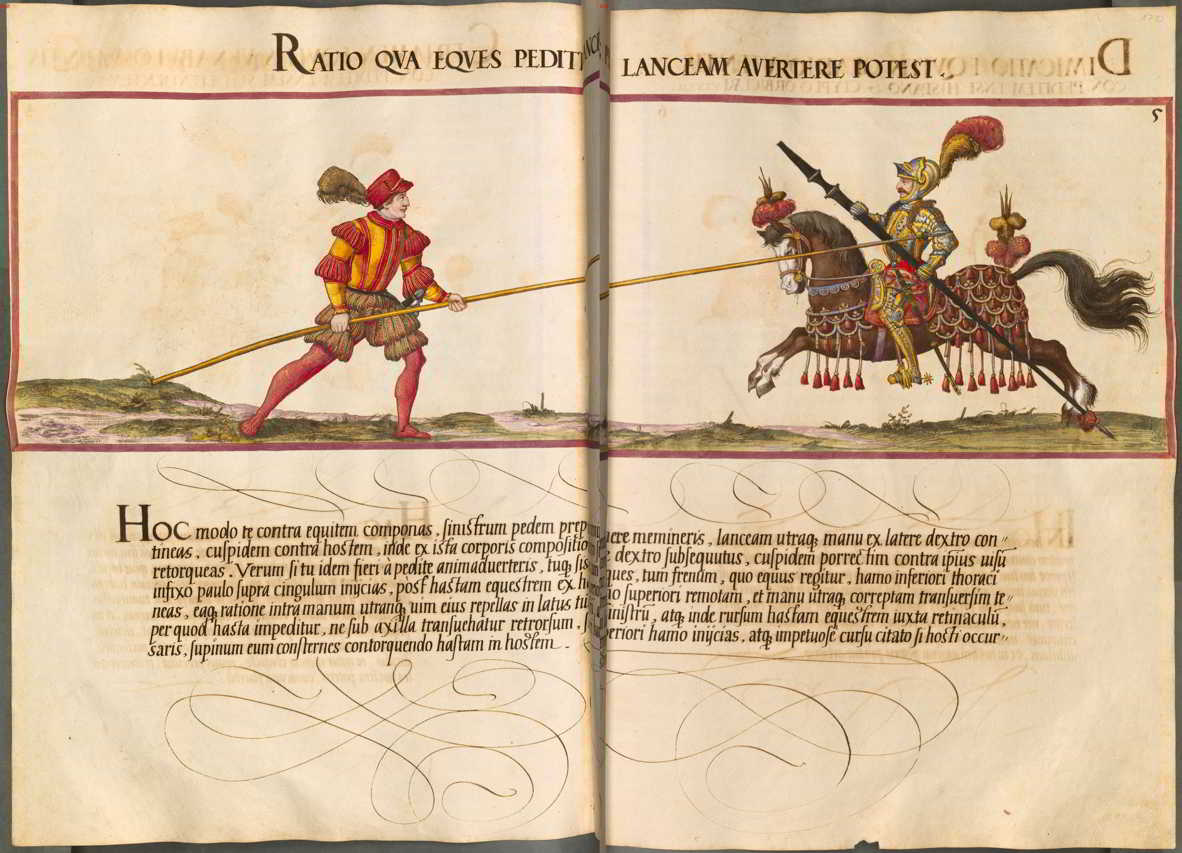 RATIO QVA EQVES PEDIT LANCEAM AVERTERE POTEST.
5
HOC modo te contra equitem componas, sinistrum pedem prep ere memineris, lanceam utraq; manu ex latere dextro con=
tineas, cuspidem contra hostem, inde ex ista corporis compositio dextro subsequutus, cuspidem porrectim contra ipius uisũ
retorqueas. Verum si tu idem fieri à pedite animaduerteris, tuq; sis ques, tum frenũm, quo equus regitur, hamo inferiori thoraci
infixo paulo supra cingulum inijcias, post hastam equestrem ex h io superiori remotam, et manu utraq; correptam transuersim te=
neas, eaq; ratione intra manum utranq; uim eius repellas in latus inistrũ, atq; inde rursum hastam equestrem iuxta retinaculũ,
per quod hasta impeditur, ne sub axilla transuehatur retrorsum, eriori hamo inijcias, atq; impetuose cursu citato si hosti occur=
saris, supinum eum consternes contorquendo hastam in hostem.